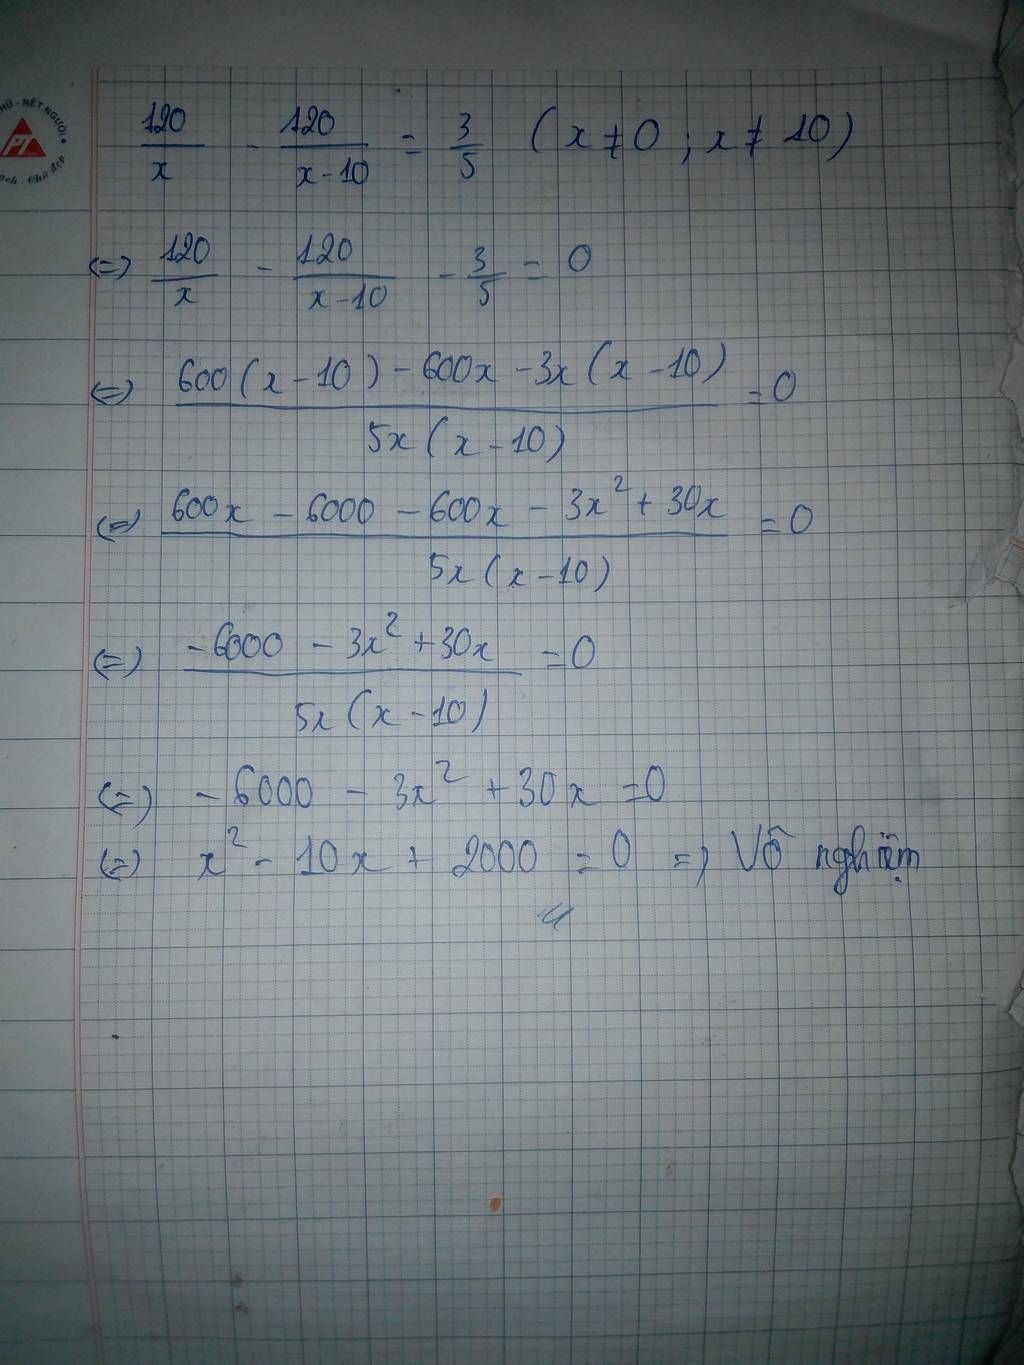 HỮ - NẾT NGƯỜI
PT
120/x - 120/(x-10) = 3/5 (x ≠ 0 ; x ≠ 10)
(=) 120/x - 120/(x-10) - 3/5 = 0
(=) (600(x-10) - 600x - 3x(x-10))/(5x(x-10)) = 0
(=) (600x - 6000 - 600x - 3x² + 30x)/(5x(x-10)) = 0
(=) (-6000 - 3x² + 30x)/(5x(x-10)) = 0
(=) -6000 - 3x² + 30x = 0
(=) x² - 10x + 2000 = 0 =) Vô nghiệm